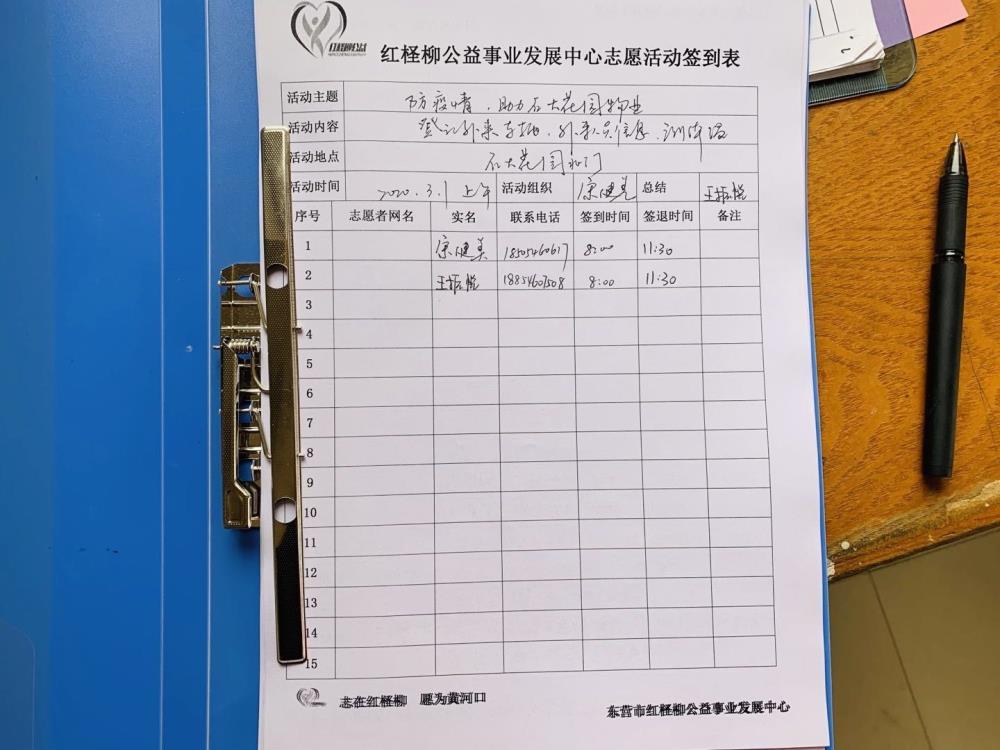 红柽柳公益
红柽柳公益事业发展中心志愿活动签到表
活动主题 防疫情.助力石大花园物业
活动内容 登记外来车辆.外来人员信息.测体温
活动地点 石大花园北门
活动时间 2020.3.1 上午 活动组织 康健美 总结 王振悦
序号 志愿者网名 实名 联系电话 签到时间 签退时间 备注
1 康健美 18505460617 8:00 11:30
2 王振悦 18854607508 8:00 11:30
3
4
5
6
7
8
9
10
11
12
13
14
15
志在红柽柳 愿为黄河口
东营市红柽柳公益事业发展中心